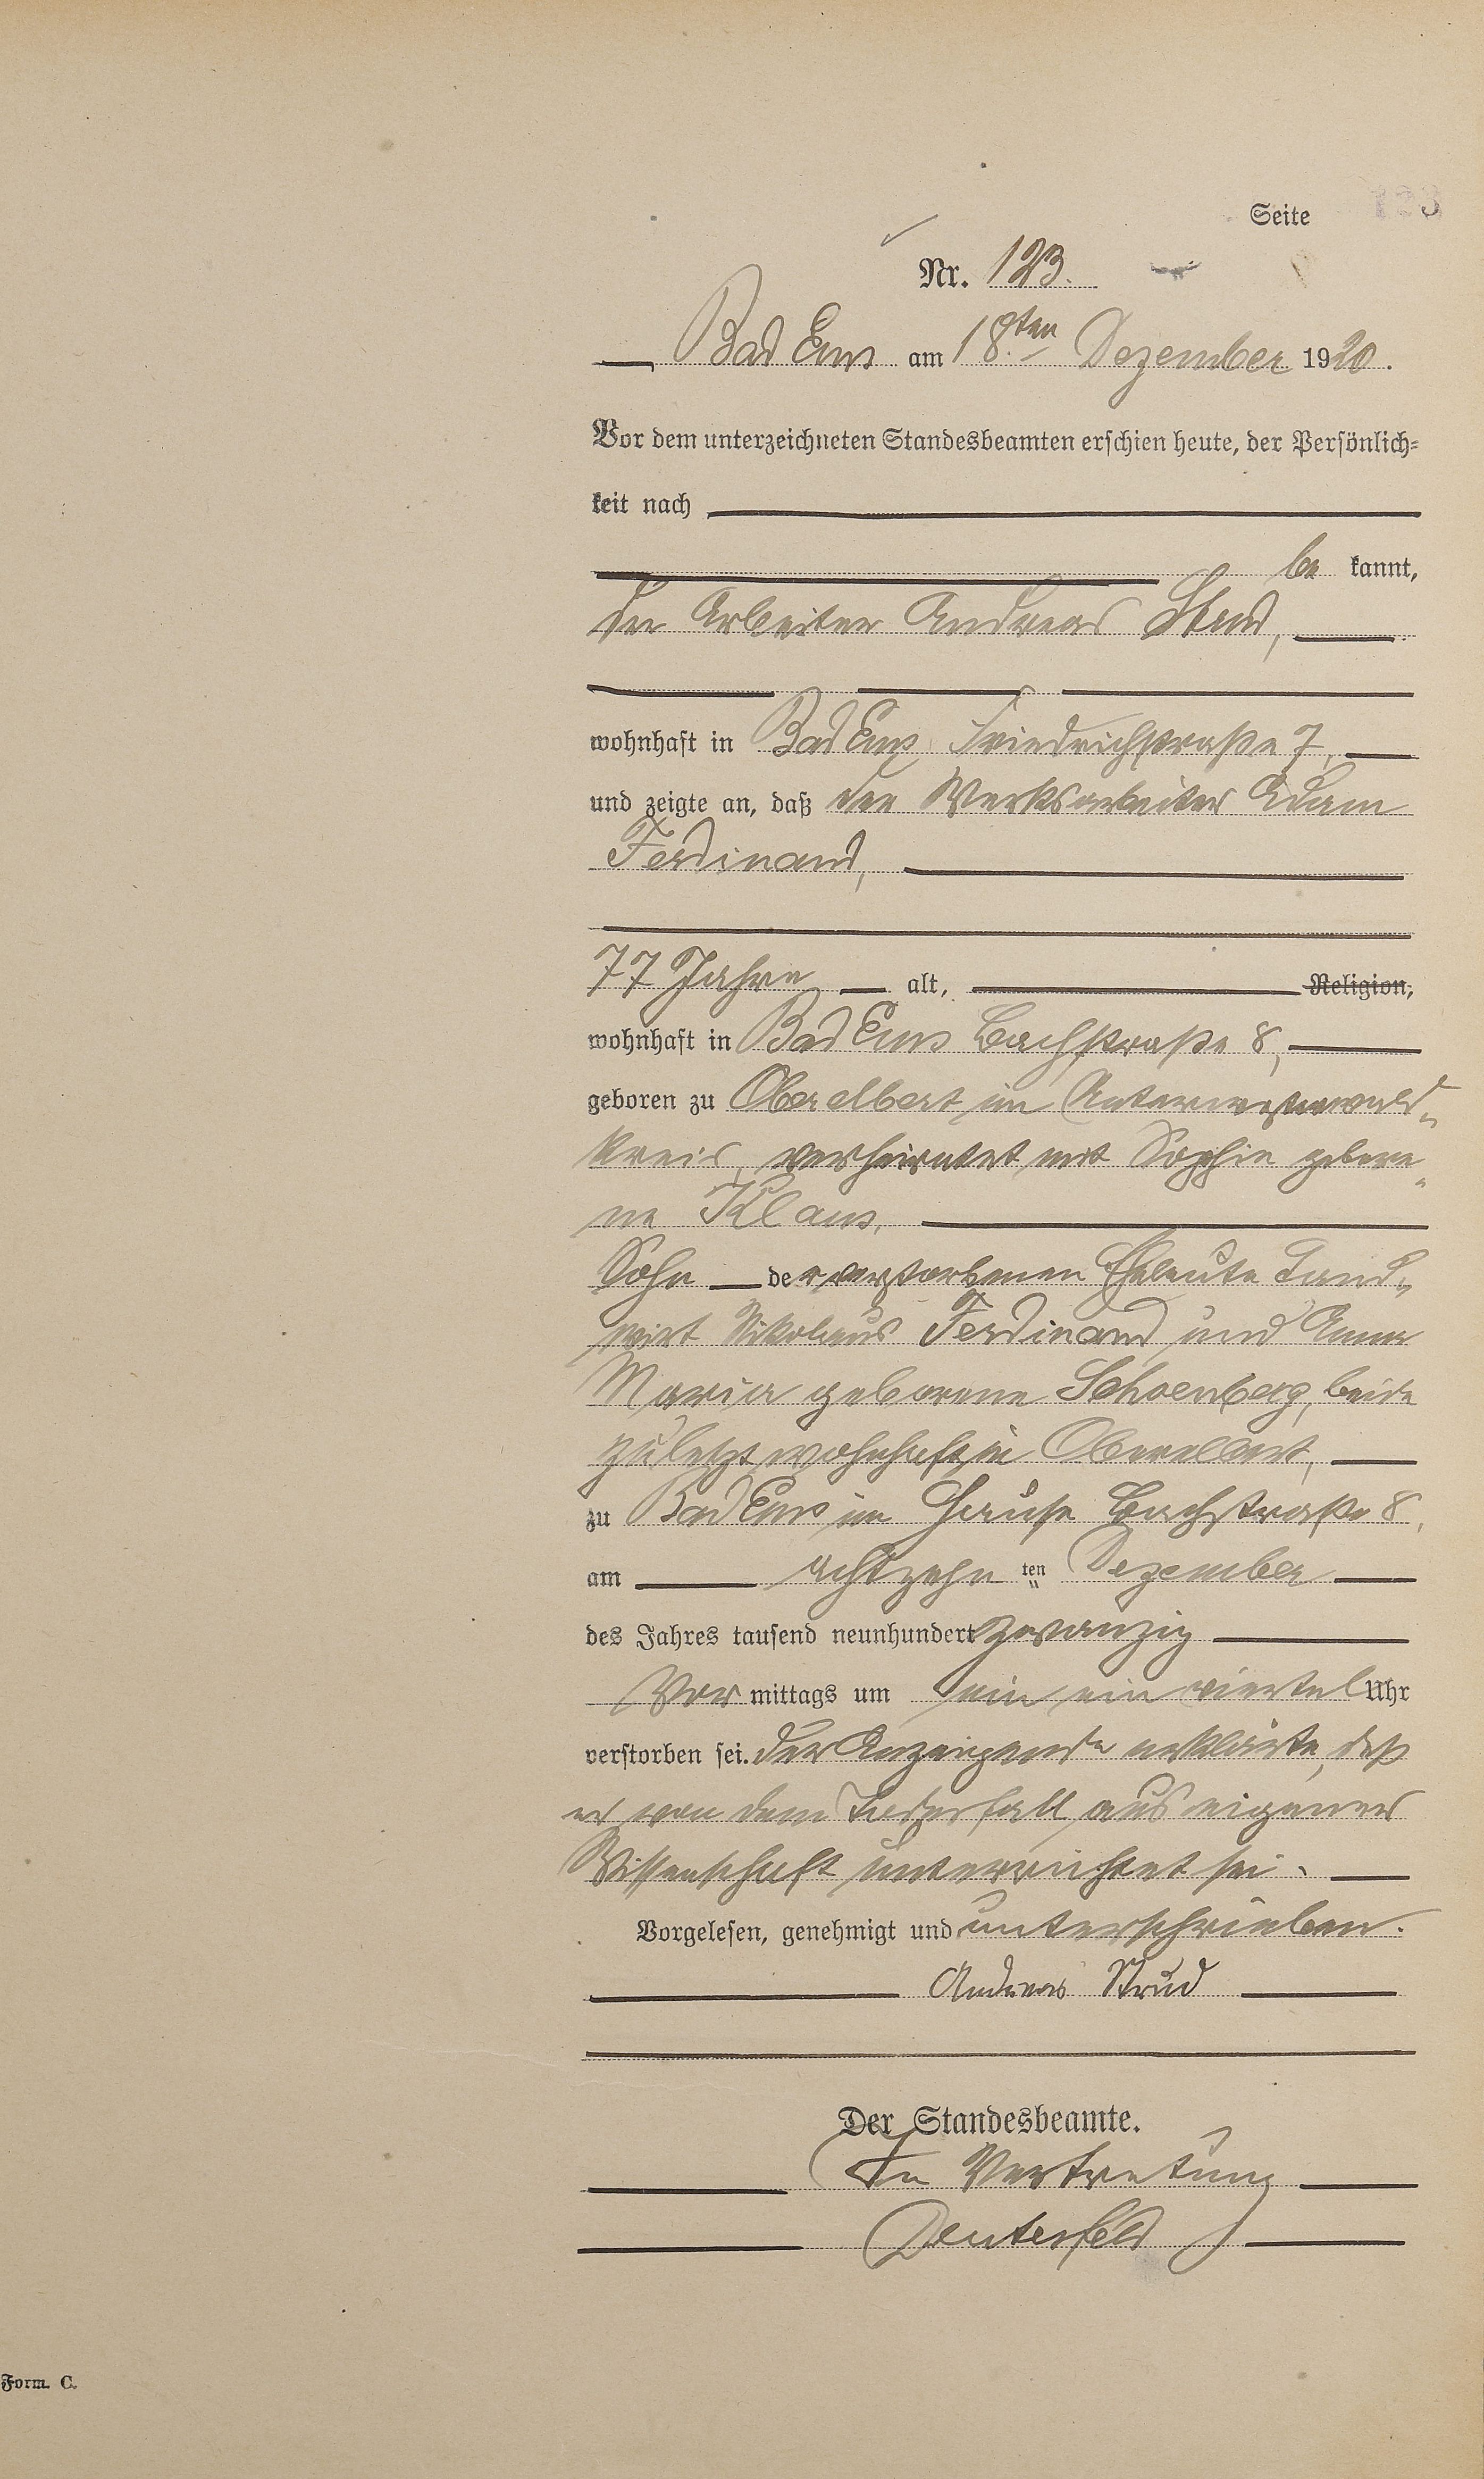 Seite 123
Nr. 123.
Bad Ems am 18.ten Dezember 1920.
Vor dem unterzeichneten Standesbeamten erschien heute, der Persönlich=
keit nach
be kannt,
der Arbeiter Andreas
wohnhaft in Bad Ems, Friedrichstraße 7,
und zeigte an, daß der Werksarbeiter Adam
Ferdinand,
77 Jahre alt, Religion,
wohnhaft in Bad Ems Bachstraße 8,
geboren zu Oberelbert im Unterwesterwald-
kreis, verheiratet mit Sophie gebore-
ne Klaus,
Sohn der verstorbenen Eheleute Land-
wirt Nikolaus Ferdinand und Anna
Maria geborene Schoenberg, beide
zuletzt wohnhaft in Oberelbert,
zu Bad Ems im Hause Bachstraße 8,
am achtzehn ten Dezember
des Jahres tausend neunhundert zwanzig
Vor mittags um ein ein viertel Uhr
verstorben sei. Der Anzeigende erklärte, daß
er von dem Todesfall aus eigener
Wissenschaft unterrichtet sei.
Vorgelesen, genehmigt und unterschrieben.
Andreas
Der Standesbeamte.
In Vertretung
Form. C.